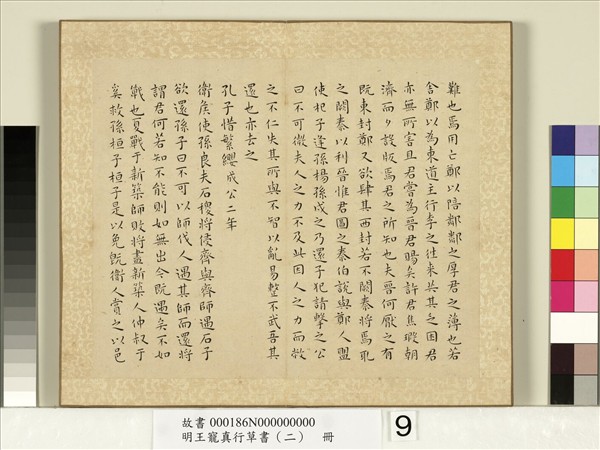 難也焉用亡鄭以陪鄰鄰之厚君之薄也若
舍鄭以為東道主行李之往來共其乏困君
亦無所害且君嘗為晉君賜矣許君焦瑕朝
濟而夕設版焉君之所知也夫晉何厭之有
既東封鄭又欲肆其西封若不闕秦將焉取
之闕秦以利晉惟君圖之秦伯說與鄭人盟
使杞子逢孫楊孫戍之乃還子犯請擊之公
曰不可微夫人之力不及此因人之力而敝
之不仁失其所與不智以亂易整不武吾其
還也亦去之
孔子惜繁纓成公二年
衛侯使孫良夫石稷將侵齊與齊師遇石子
欲還孫子曰不可以師伐人遇其師而還將
謂君何若知不能則如無出今既遇矣不如
戰也夏戰于新築師敗將盡新築人仲叔于
奚救孫桓子桓子是以免既衛人賞之以邑
故書 000186N000000000
明王寵真行草書（二） 冊
9